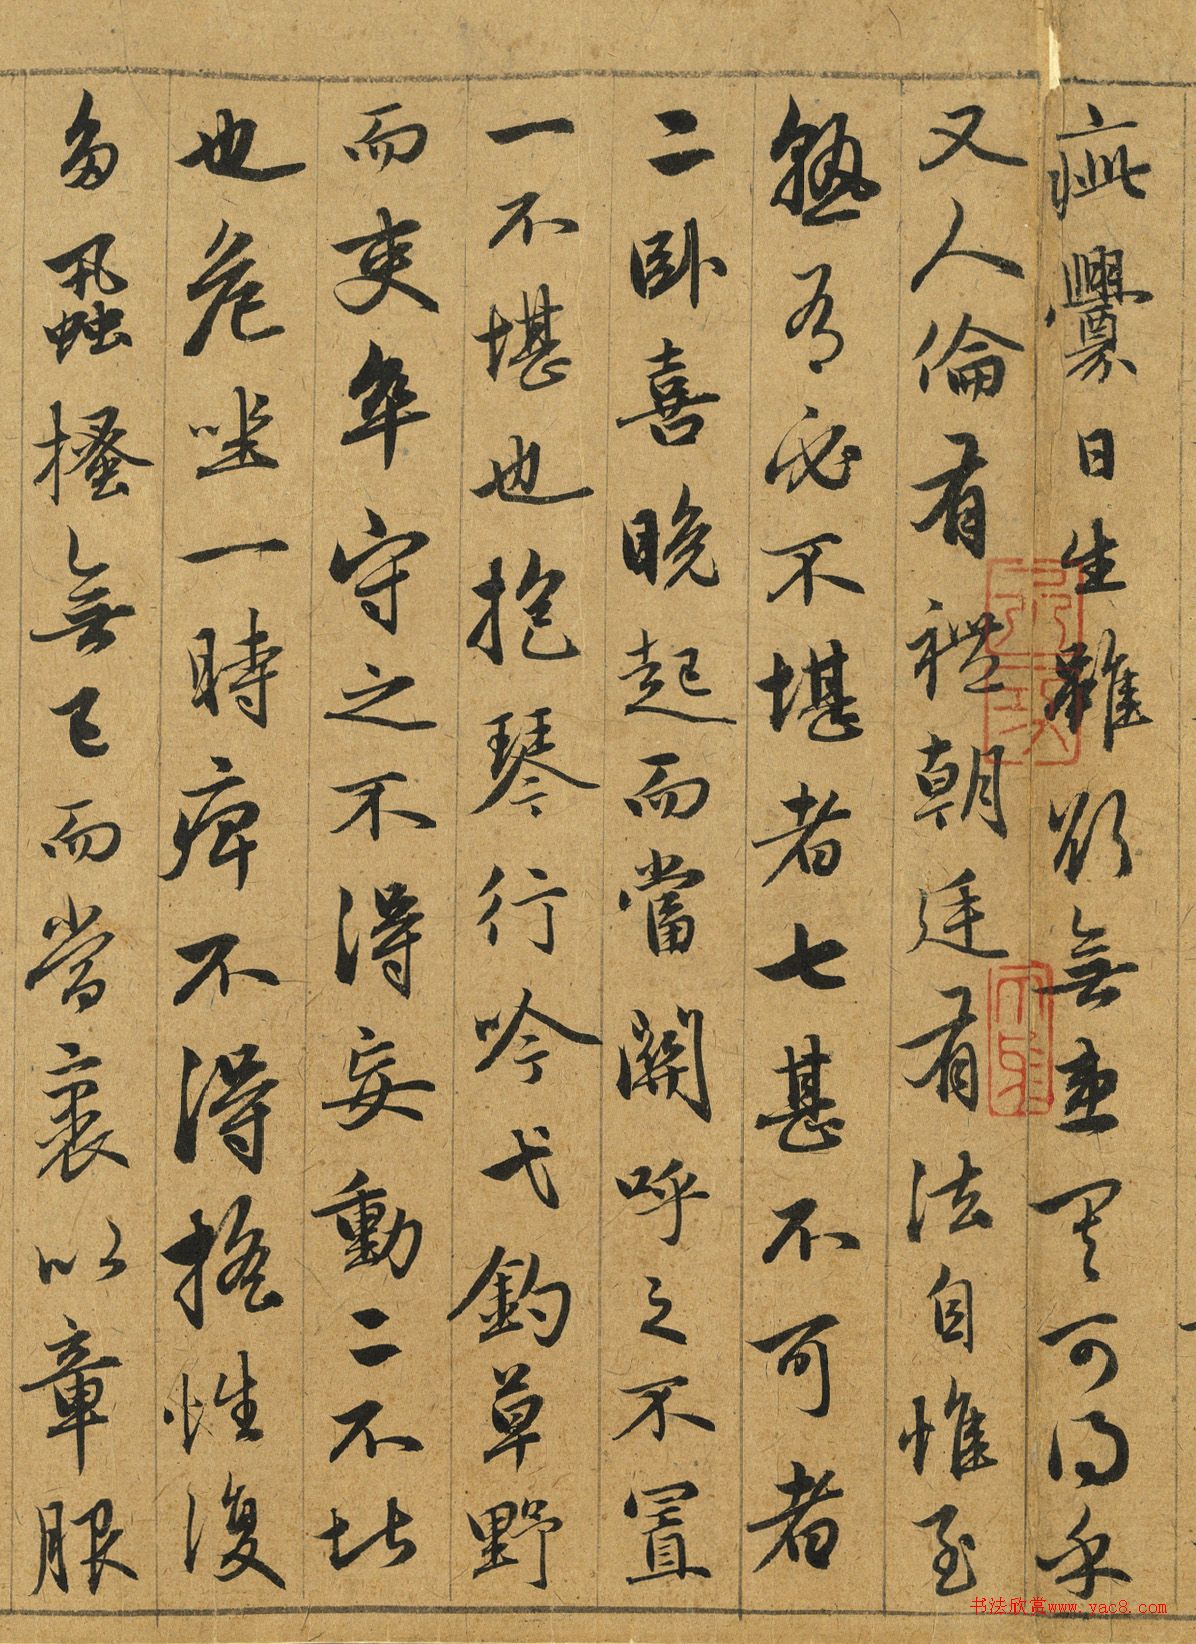 疵釁日生雖欲無患其可得乎
又人倫有禮朝廷有法自惟至
熟有必不堪者七甚不可者
二卧喜晚起而當關呼之不置
一不堪也抱琴行吟弋釣草野
而吏卒守之不得妄動二不堪
也危坐一時痹不得搖性復
多蝨搔無已而當裹以章服
书法欣赏www.yac8.com